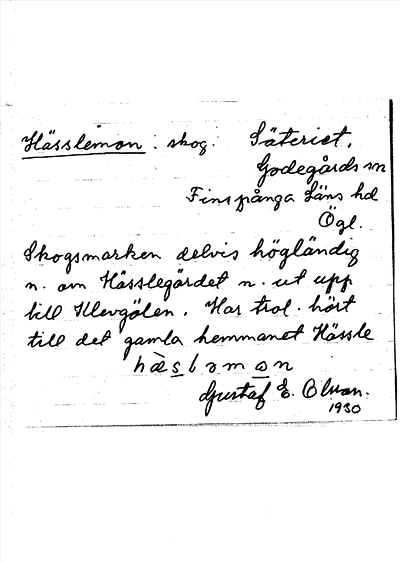 Hässlemon : skog. Säteriet,
Godegårds sn
Finspånga läns hd
Ögl.
Skogsmarken delvis högländig
n. om Hässlegärdet n. ut upp
till Klevgölen. Har trol. hört
till det gamla hemmanet Hässle
hàsləmọn
Gustaf E. Olsson.
1930